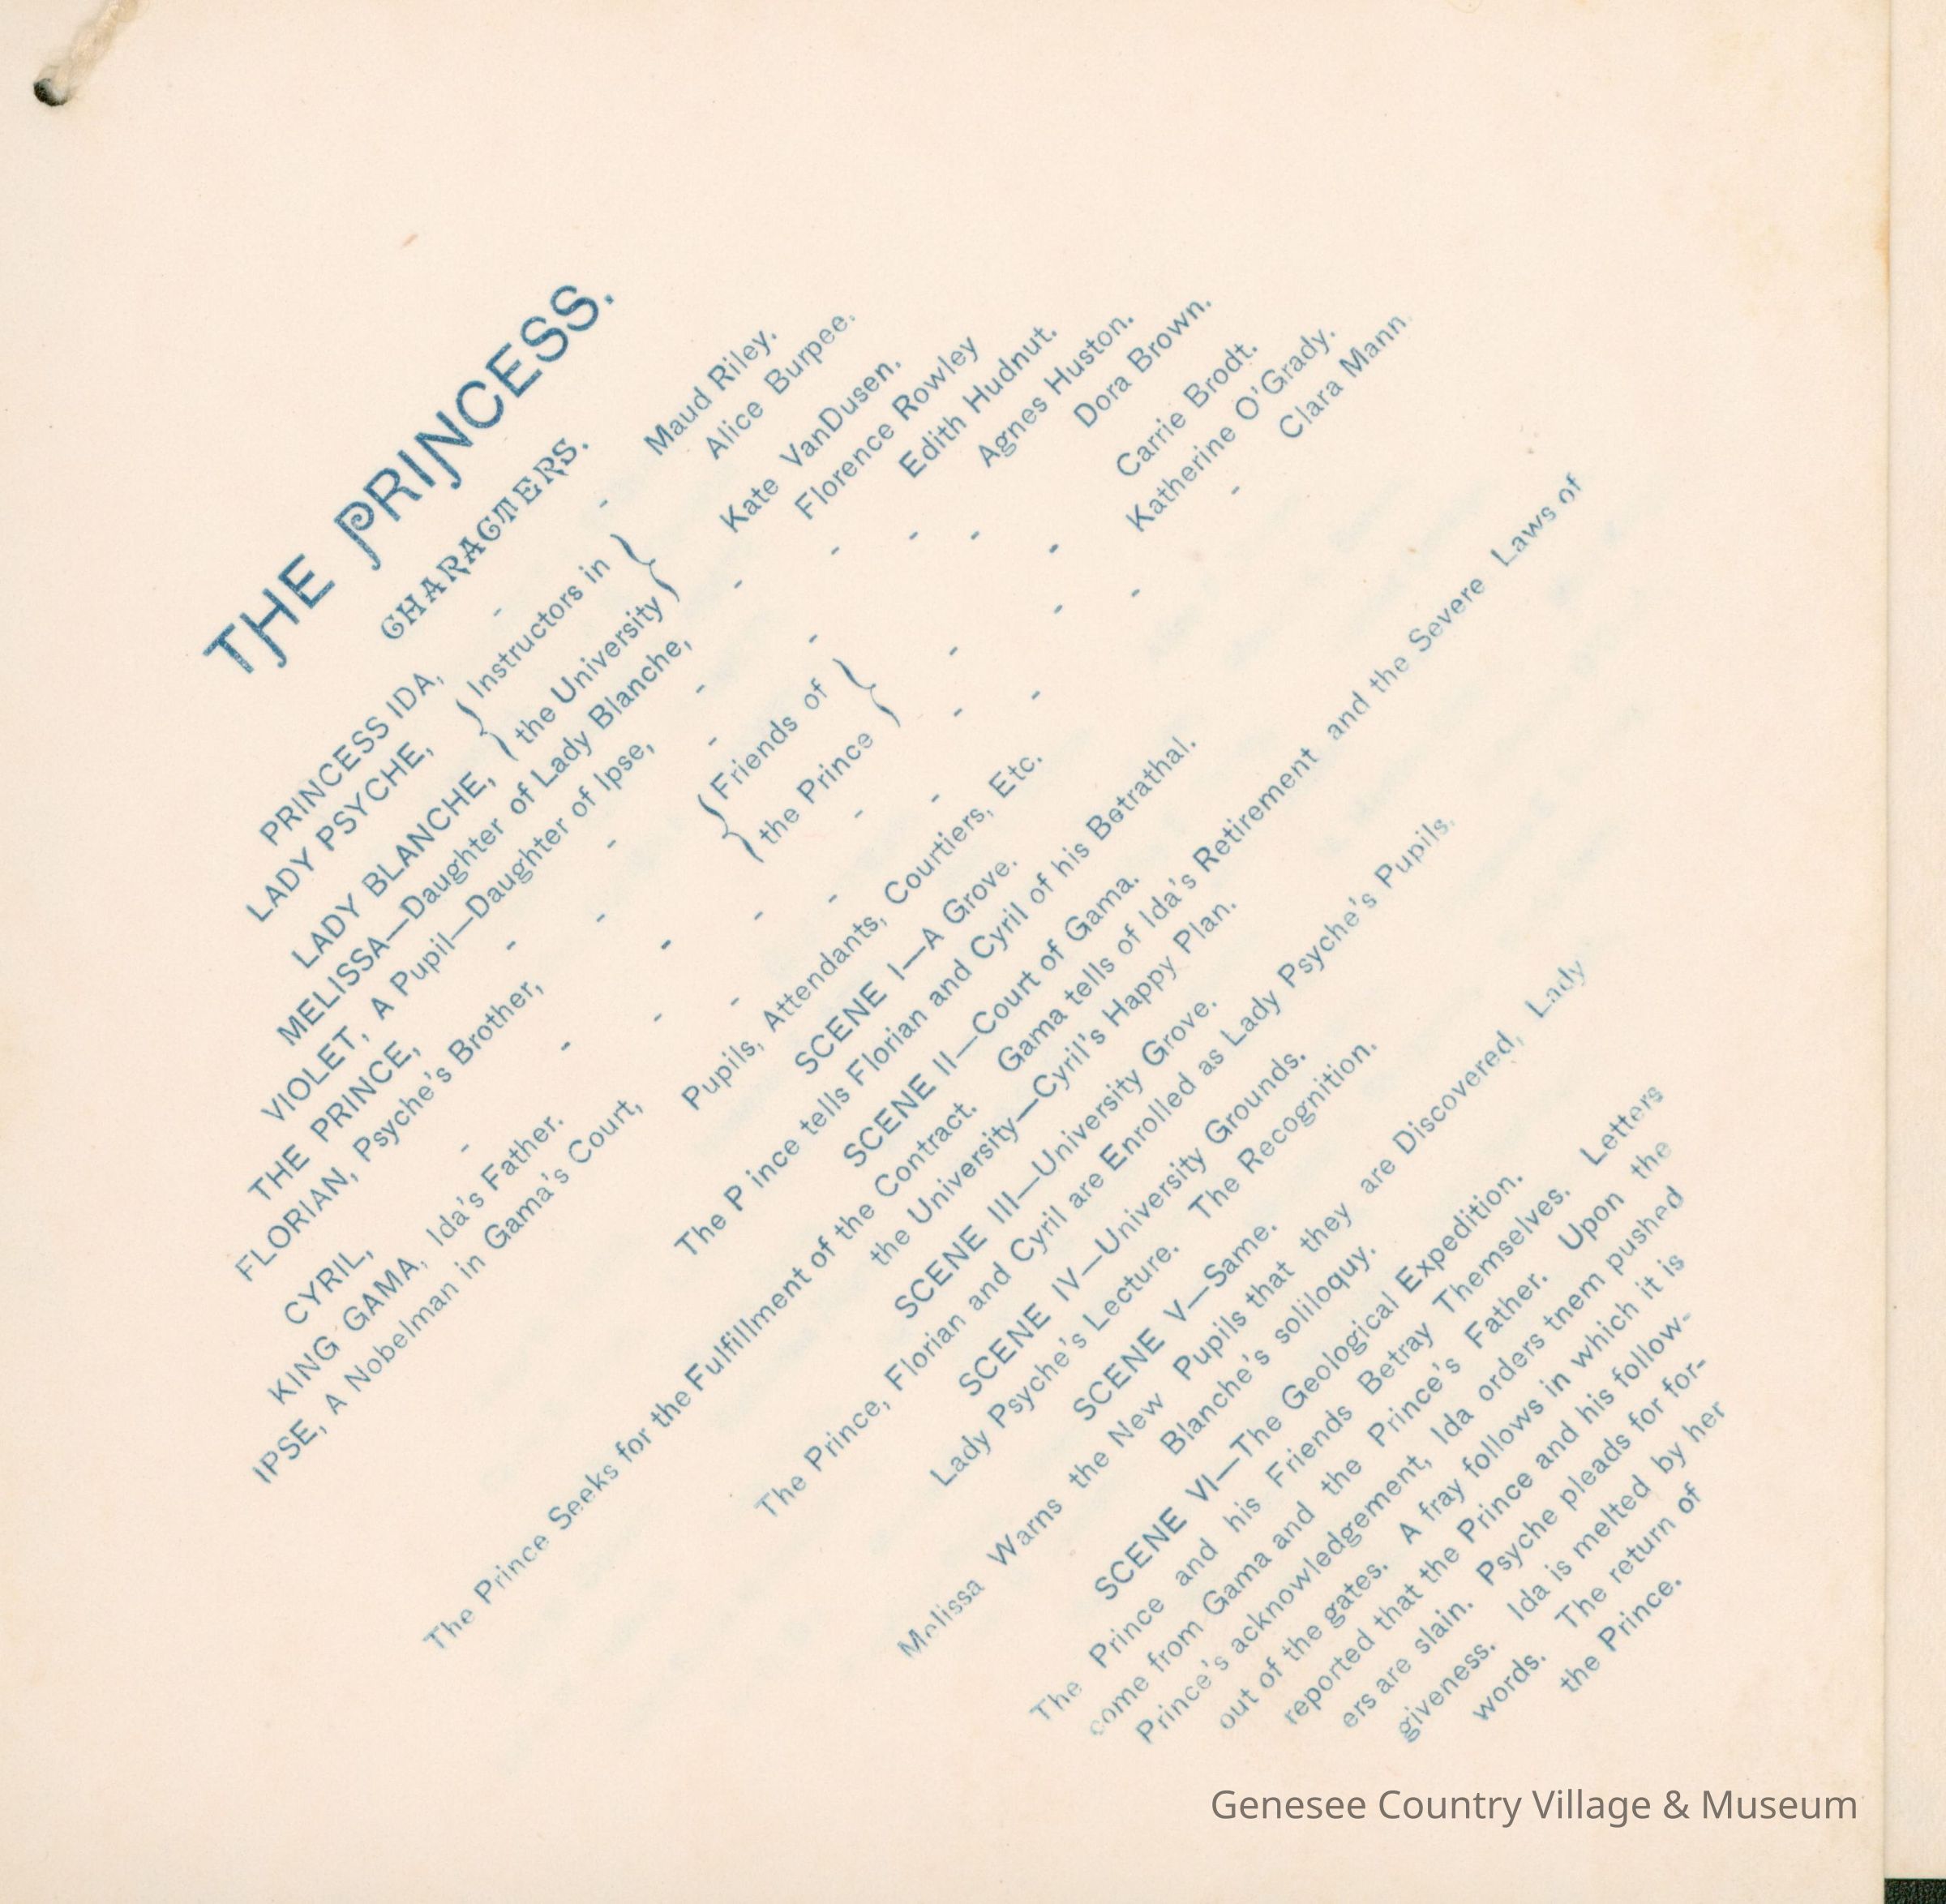 THE PRINCESS.
CHARACTERS.
PRINCESS IDA, - - Maud Riley.
LADY PSYCHE, { Instructors in } Alice Burpee.
LADY BLANCHE, { the University } Kate VanDusen.
MELISSA—Daughter of Lady Blanche, - Florence Rowley
VIOLET, A Pupil—Daughter of Ipse, - - - Edith Hudnut.
THE PRINCE, - - - - - - - Agnes Huston.
FLORIAN, Psyche's Brother, { Friends of } - - Dora Brown.
CYRIL, - - - - { the Prince } - - Carrie Brodt.
KING GAMA, Ida's Father. - - - - - - Katherine O'Grady.
IPSE, A Nobelman in Gama's Court, - - - - - - Clara Mann.
Pupils, Attendants, Courtiers, Etc.
SCENE I—A Grove.
The P ince tells Florian and Cyril of his Betrathal.
SCENE II—Court of Gama.
The Prince Seeks for the Fulfillment of the Contract. Gama tells of Ida's Retirement and the Severe Laws of
the University—Cyril's Happy Plan.
SCENE III—University Grove.
The Prince, Florian and Cyril are Enrolled as Lady Psyche's Pupils.
SCENE IV—University Grounds.
Lady Psyche's Lecture. The Recognition.
SCENE V—Same.
Melissa Warns the New Pupils that they are Discovered, Lady
Blanche's soliloquy.
SCENE VI—The Geological Expedition.
The Prince and his Friends Betray Themselves. Letters
come from Gama and the Prince's Father. Upon the
Prince's acknowledgement, Ida orders tnem pushed
out of the gates. A fray follows in which it is
reported that the Prince and his follow-
ers are slain. Psyche pleads for for-
giveness. Ida is melted by her
words. The return of
the Prince.
Genesee Country Village & Museum